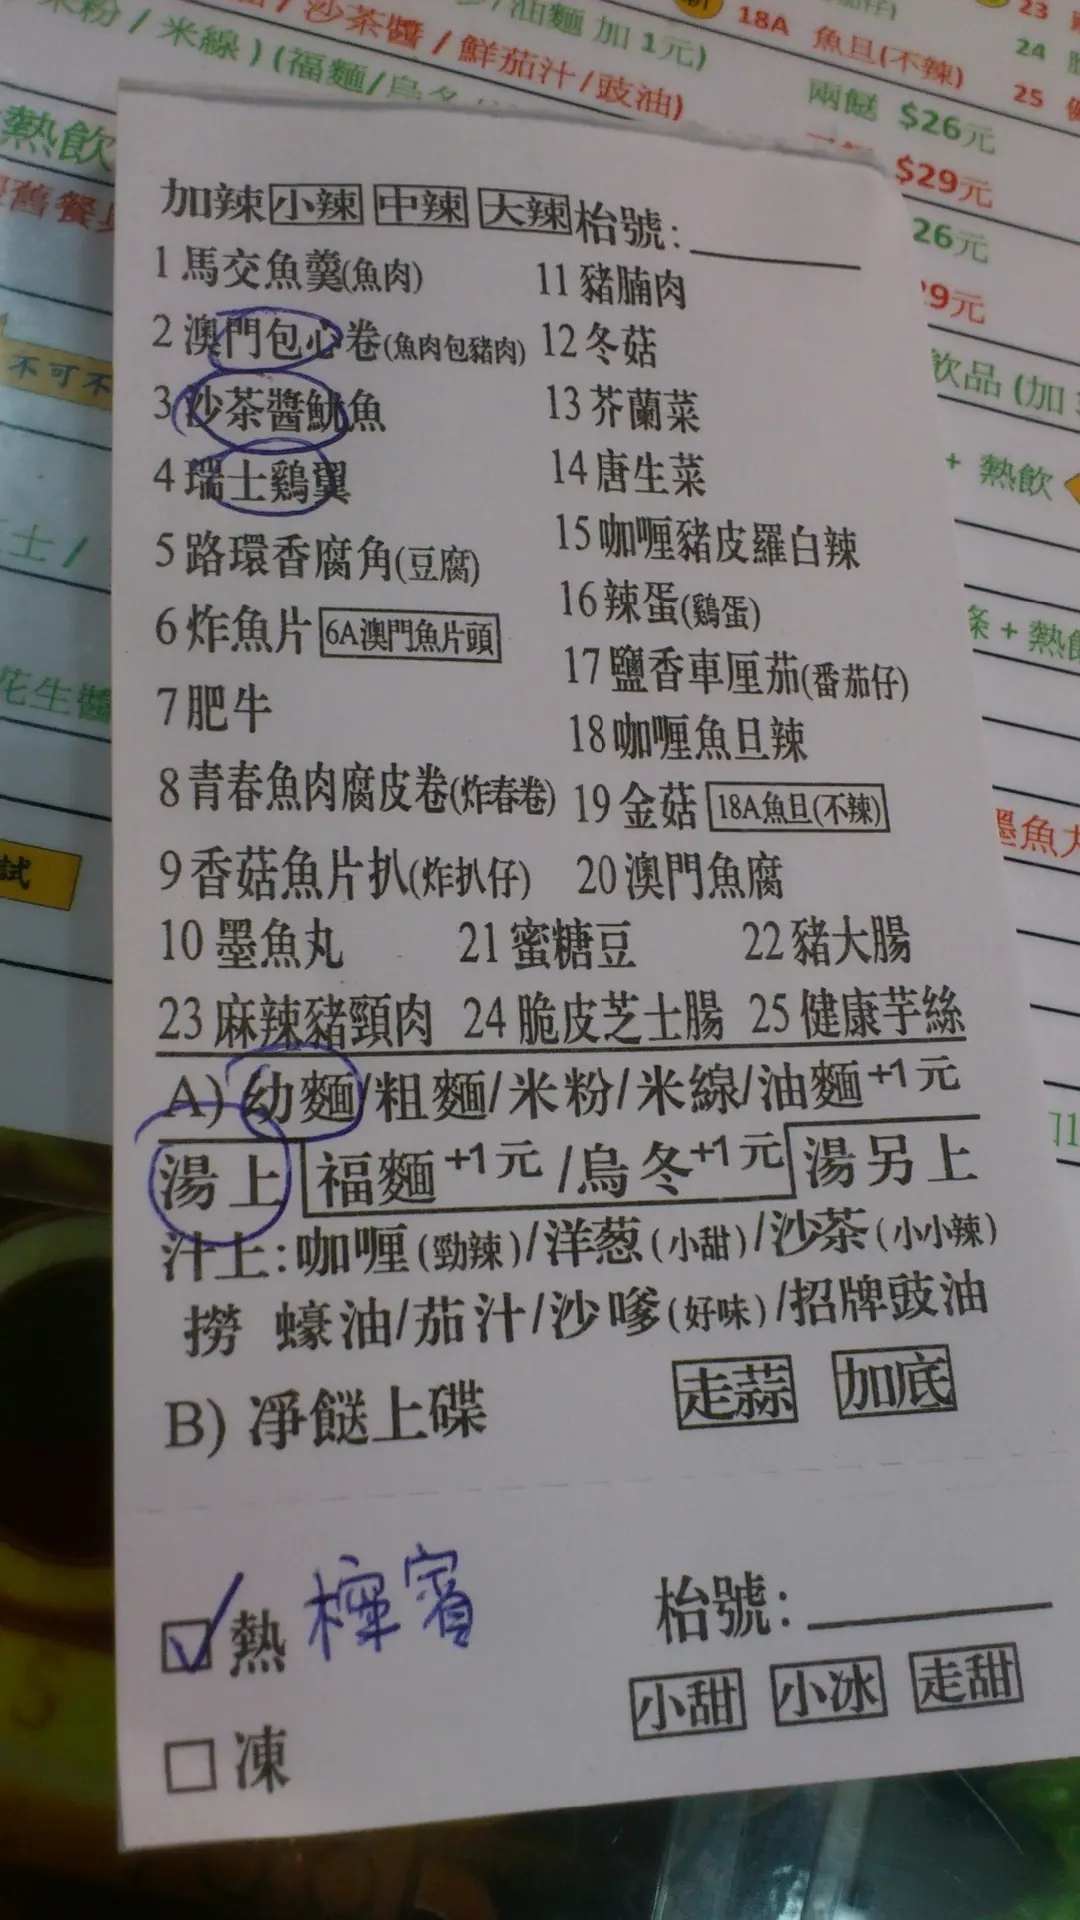 米粉 / 米線 ) (福麵/烏冬
/ 沙茶醬 / 鮮茄汁 /豉油)
/油麵 加 1元)
18A 魚旦(不辣)
23
24
25
兩餸 $26元
$29元
26元
9元
熱飲
舊餐具
不可不
飲品 (加
+ 熱飲
士 /
花生醬
試
+ 熱飲
墨魚丸
加辣 小辣 中辣 大辣 枱號:
1 馬交魚羹(魚肉) 11 豬腩肉
2 澳門包心卷(魚肉包豬肉) 12 冬菇
3 沙茶醬魷魚 13 芥蘭菜
4 瑞士鷄翼 14 唐生菜
5 路環香腐角(豆腐) 15 咖喱豬皮羅白辣
6 炸魚片 6A澳門魚片頭 16 辣蛋(鷄蛋)
7 肥牛 17 鹽香車厘茄(番茄仔)
18 咖喱魚旦辣
8 青春魚肉腐皮卷(炸春卷) 19 金菇 18A魚旦(不辣)
9 香菇魚片扒(炸扒仔) 20 澳門魚腐
10 墨魚丸 21 蜜糖豆 22 豬大腸
23 麻辣豬頸肉 24 脆皮芝士腸 25 健康芋絲
A) 幼麵/粗麵/米粉/米線/油麵+1元
湯上 福麵+1元 /烏冬+1元 湯另上
汁上:咖喱(勁辣)/洋葱(小甜)/沙茶(小小辣)
撈 蠔油/茄汁/沙嗲(好味)/招牌豉油
B) 凈餸上碟 走蒜 加底
熱 檸賓 枱號:
小甜 小冰 走甜
凍